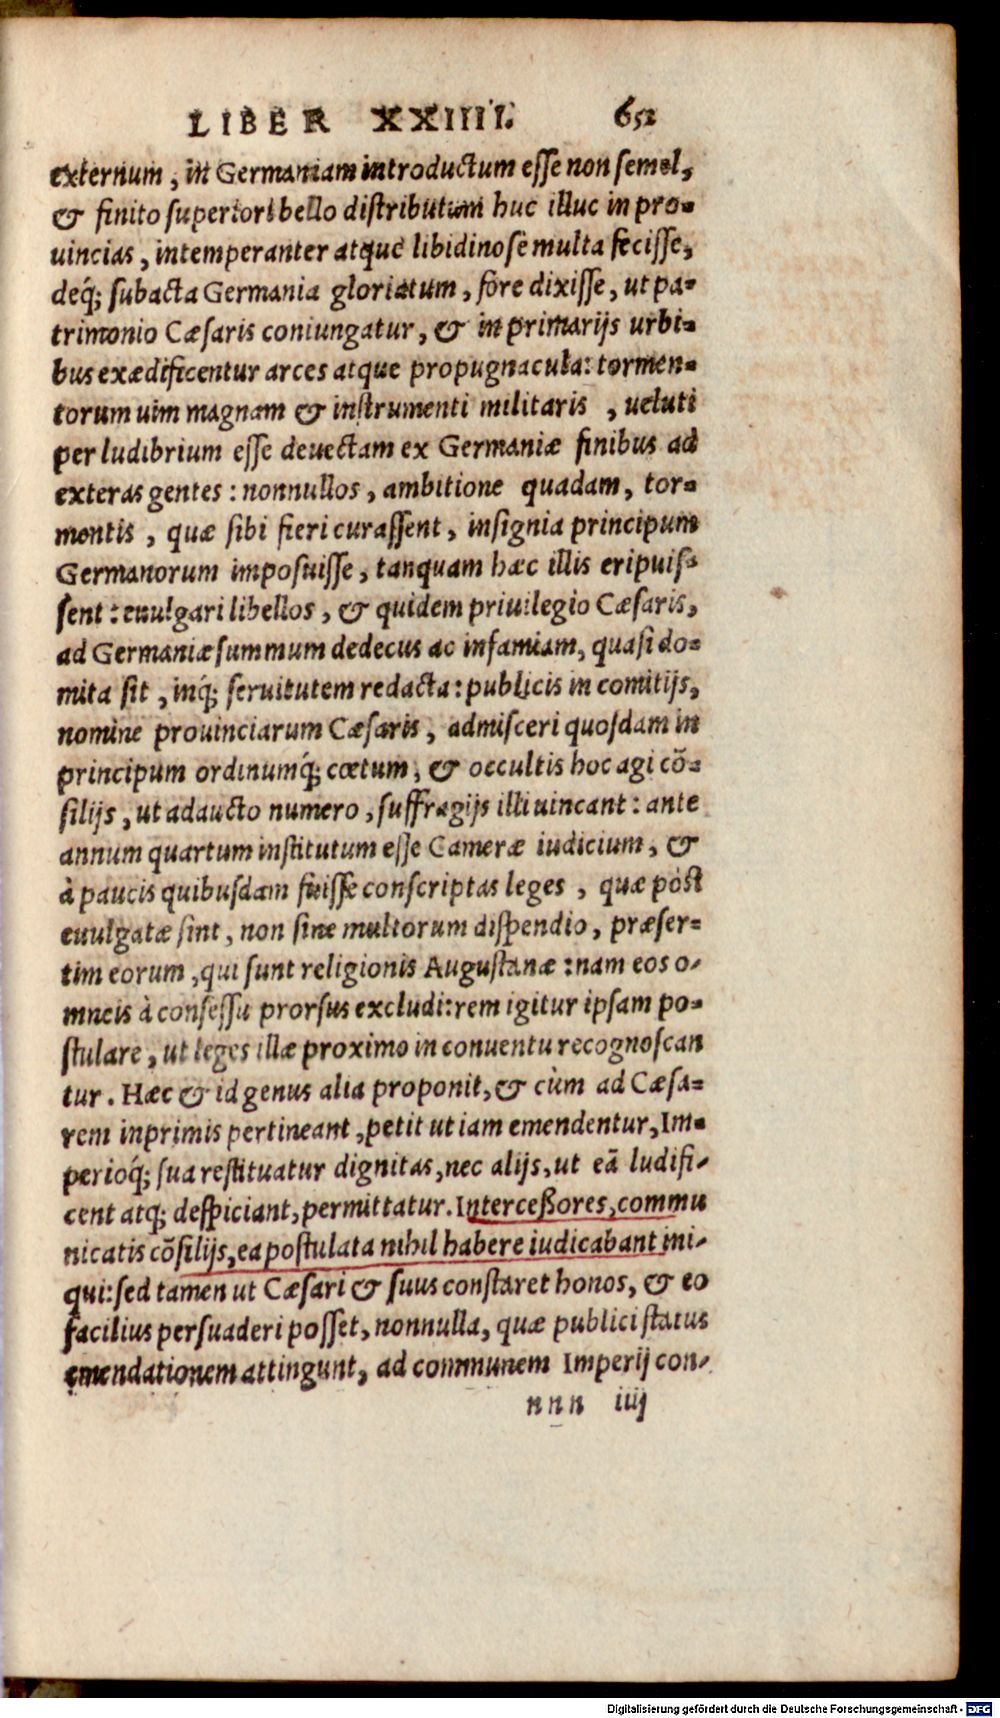 LIBER XXIIII. 652
externum, in Germaniam introductum esse non semel,
& finito superiori bello distributum huc illuc in pro-
uincias, intemperanter atque libidinosè multa fecisse,
deq́; subacta Germania gloriatum, fore dixisse, ut pa-
trimonio Cæsaris coniungatur, & in primarijs urbi-
bus exædificentur arces atque propugnacula: tormen-
torum uim magnam & instrumenti militaris, ueluti
per ludibrium esse deuectam ex Germaniæ finibus ad
exteras gentes: nonnullos, ambitione quadam, tor-
mentis, quæ sibi fieri curassent, insignia principum
Germanorum imposuisse, tanquam hæc illis eripuis-
sent: euulgari libellos, & quidem priuilegio Cæsaris,
ad Germaniæ summum dedecus ac infamiam, quasi do-
mita sit, inq́; seruitutem redacta: publicis in comitijs,
nomine prouinciarum Cæsaris, admisceri quosdam in
principum ordinumq́; cœtum, & occultis hoc agi cõ-
silijs, ut adaucto numero, suffragijs illi uincant: ante
annum quartum institutum esse Cameræ iudicium, &
à paucis quibusdam fuisse conscriptas leges, quæ pòst
euulgatæ sint, non sine multorum dispendio, præser-
tim eorum, qui sunt religionis Augustanæ: nam eos o-
mneis à consessu prorsus excludi: rem igitur ipsam po-
stulare, ut leges illæ proximo in conuentu recognoscan
tur. Hæc & id genus alia proponit, & cùm ad Cæsa-
rem inprimis pertineant, petit ut iam emendentur, Im-
perioq́; sua restituatur dignitas, nec alijs, ut eã ludifi-
cent atq; despiciant, permittatur. Interceßores, commu
nicatis cõsilijs, ea postulata nihil habere iudicabant ini-
qui: sed tamen ut Cæsari & suus constaret honos, & eo
facilius persuaderi posset, nonnulla, quæ publici status
emendationem attingunt, ad communem Imperij con-
nnn iiij
Digitalisierung gefördert durch die Deutsche Forschungsgemeinschaft - DFG